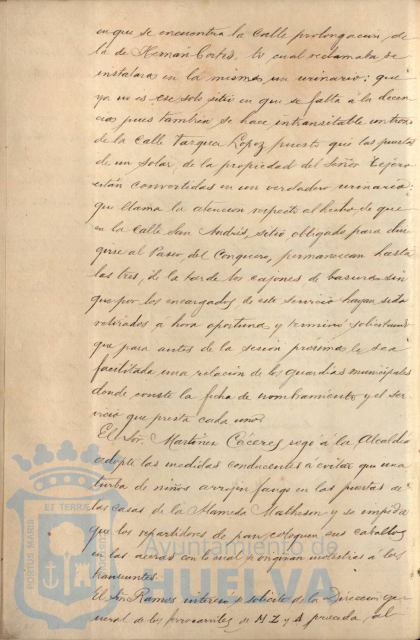 en que se encuentra la calle prolongacion de
la de Hernán Cortés, lo cual reclamaba se
instalara en la misma un urinario; que
ya no es ese solo sitio en que se falta á la decen-
cia, pues tambien se hace intransitable un trozo
de la Calle Vazquez Lopez puesto que las puertas
de un solar de la propiedad del Señor Tejero
están convertidas en un verdadero urinario;
que llama la atencion respecto al hecho de que
en la Calle San Andrés, sitio obligado para diri-
girse al Paseo del Conquero, permanezcan hasta
las tres de la tarde los cajones de basura sin
que por los encargados de este servicio hayan sido
retirados a hora oportuna, y terminó solicitando
que para antes de la sesion próxima le sea
facilitada una relacion de los guardias municipales
donde conste la fecha de nombramiento y el ser-
vicio que presta cada uno.
El Sor. Martinez Cáceres rogó á la Alcaldia
adopte las medidas conducentes á evitar que una
turba de niños arrojen fango en las puertas de
las casas de la Alameda Matheson y se impida
que los repartidores de pan coloquen sus caballos
en las aceras con lo cual originan molestias a los
transeuntes.
El Sr. Ramos interesó se solicite de la Direccion ge-
neral de los ferrocarriles de M Z y A proceda al
PORTUS MARIS ET TERRÆ
Ayuntamiento de
HUELVA